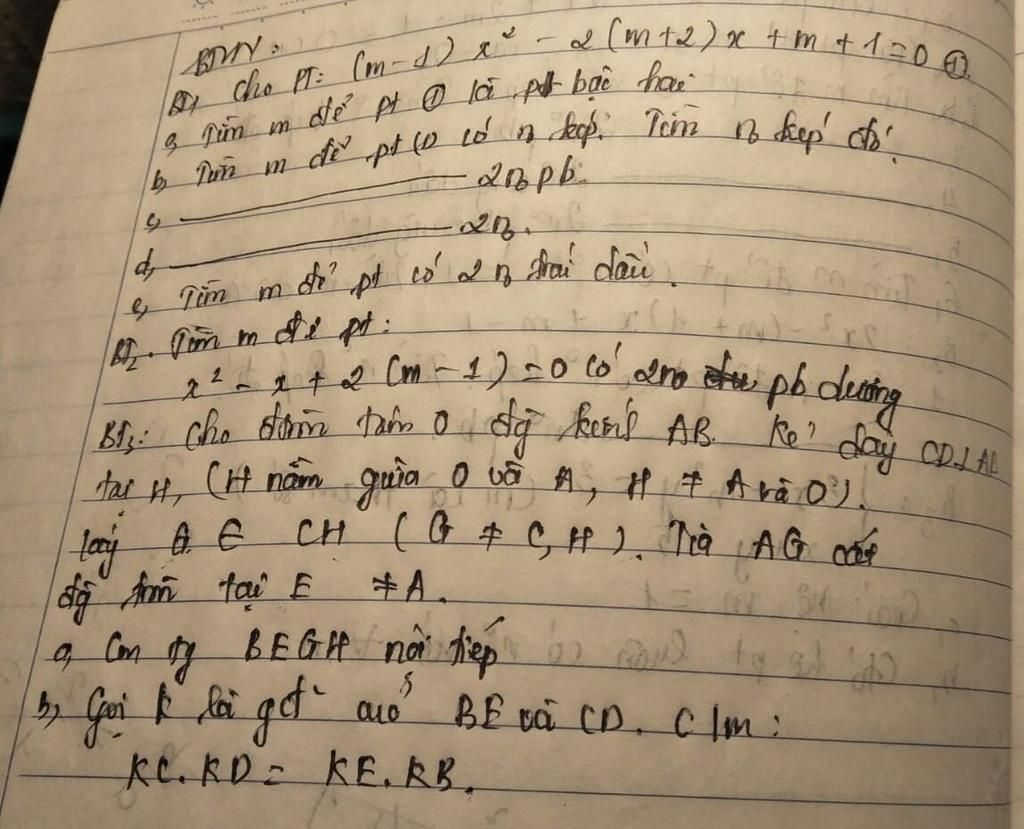 BTVN.
BT1 Cho PT: (m-1) x² - 2(m+2)x + m + 1 = 0 ①
a, Tìm m để pt ① là pt bậc hai
b, Tìm m để pt ① có n kép. Tìm n kép đó.
c, ——— 2n pb.
d, ——— 2n.
e, Tìm m để pt có 2n trái dấu.
BT2. Tìm m để pt:
x² - x + 2(m-1) = 0 có 2n pb dương
BT3: Cho đtròn tâm O đg kính AB. Kẻ dây CD⊥AB
tại H, (H nằm giữa O và A, H ≠ A và O).
lấy G ∈ CH (G ≠ C, H). Tia AG cắt
đg tròn tại E ≠ A.
a, Cm tg BEGH nội tiếp
b, Gọi K là gđ của BE và CD. C/m:
KC.KD = KE.KB.